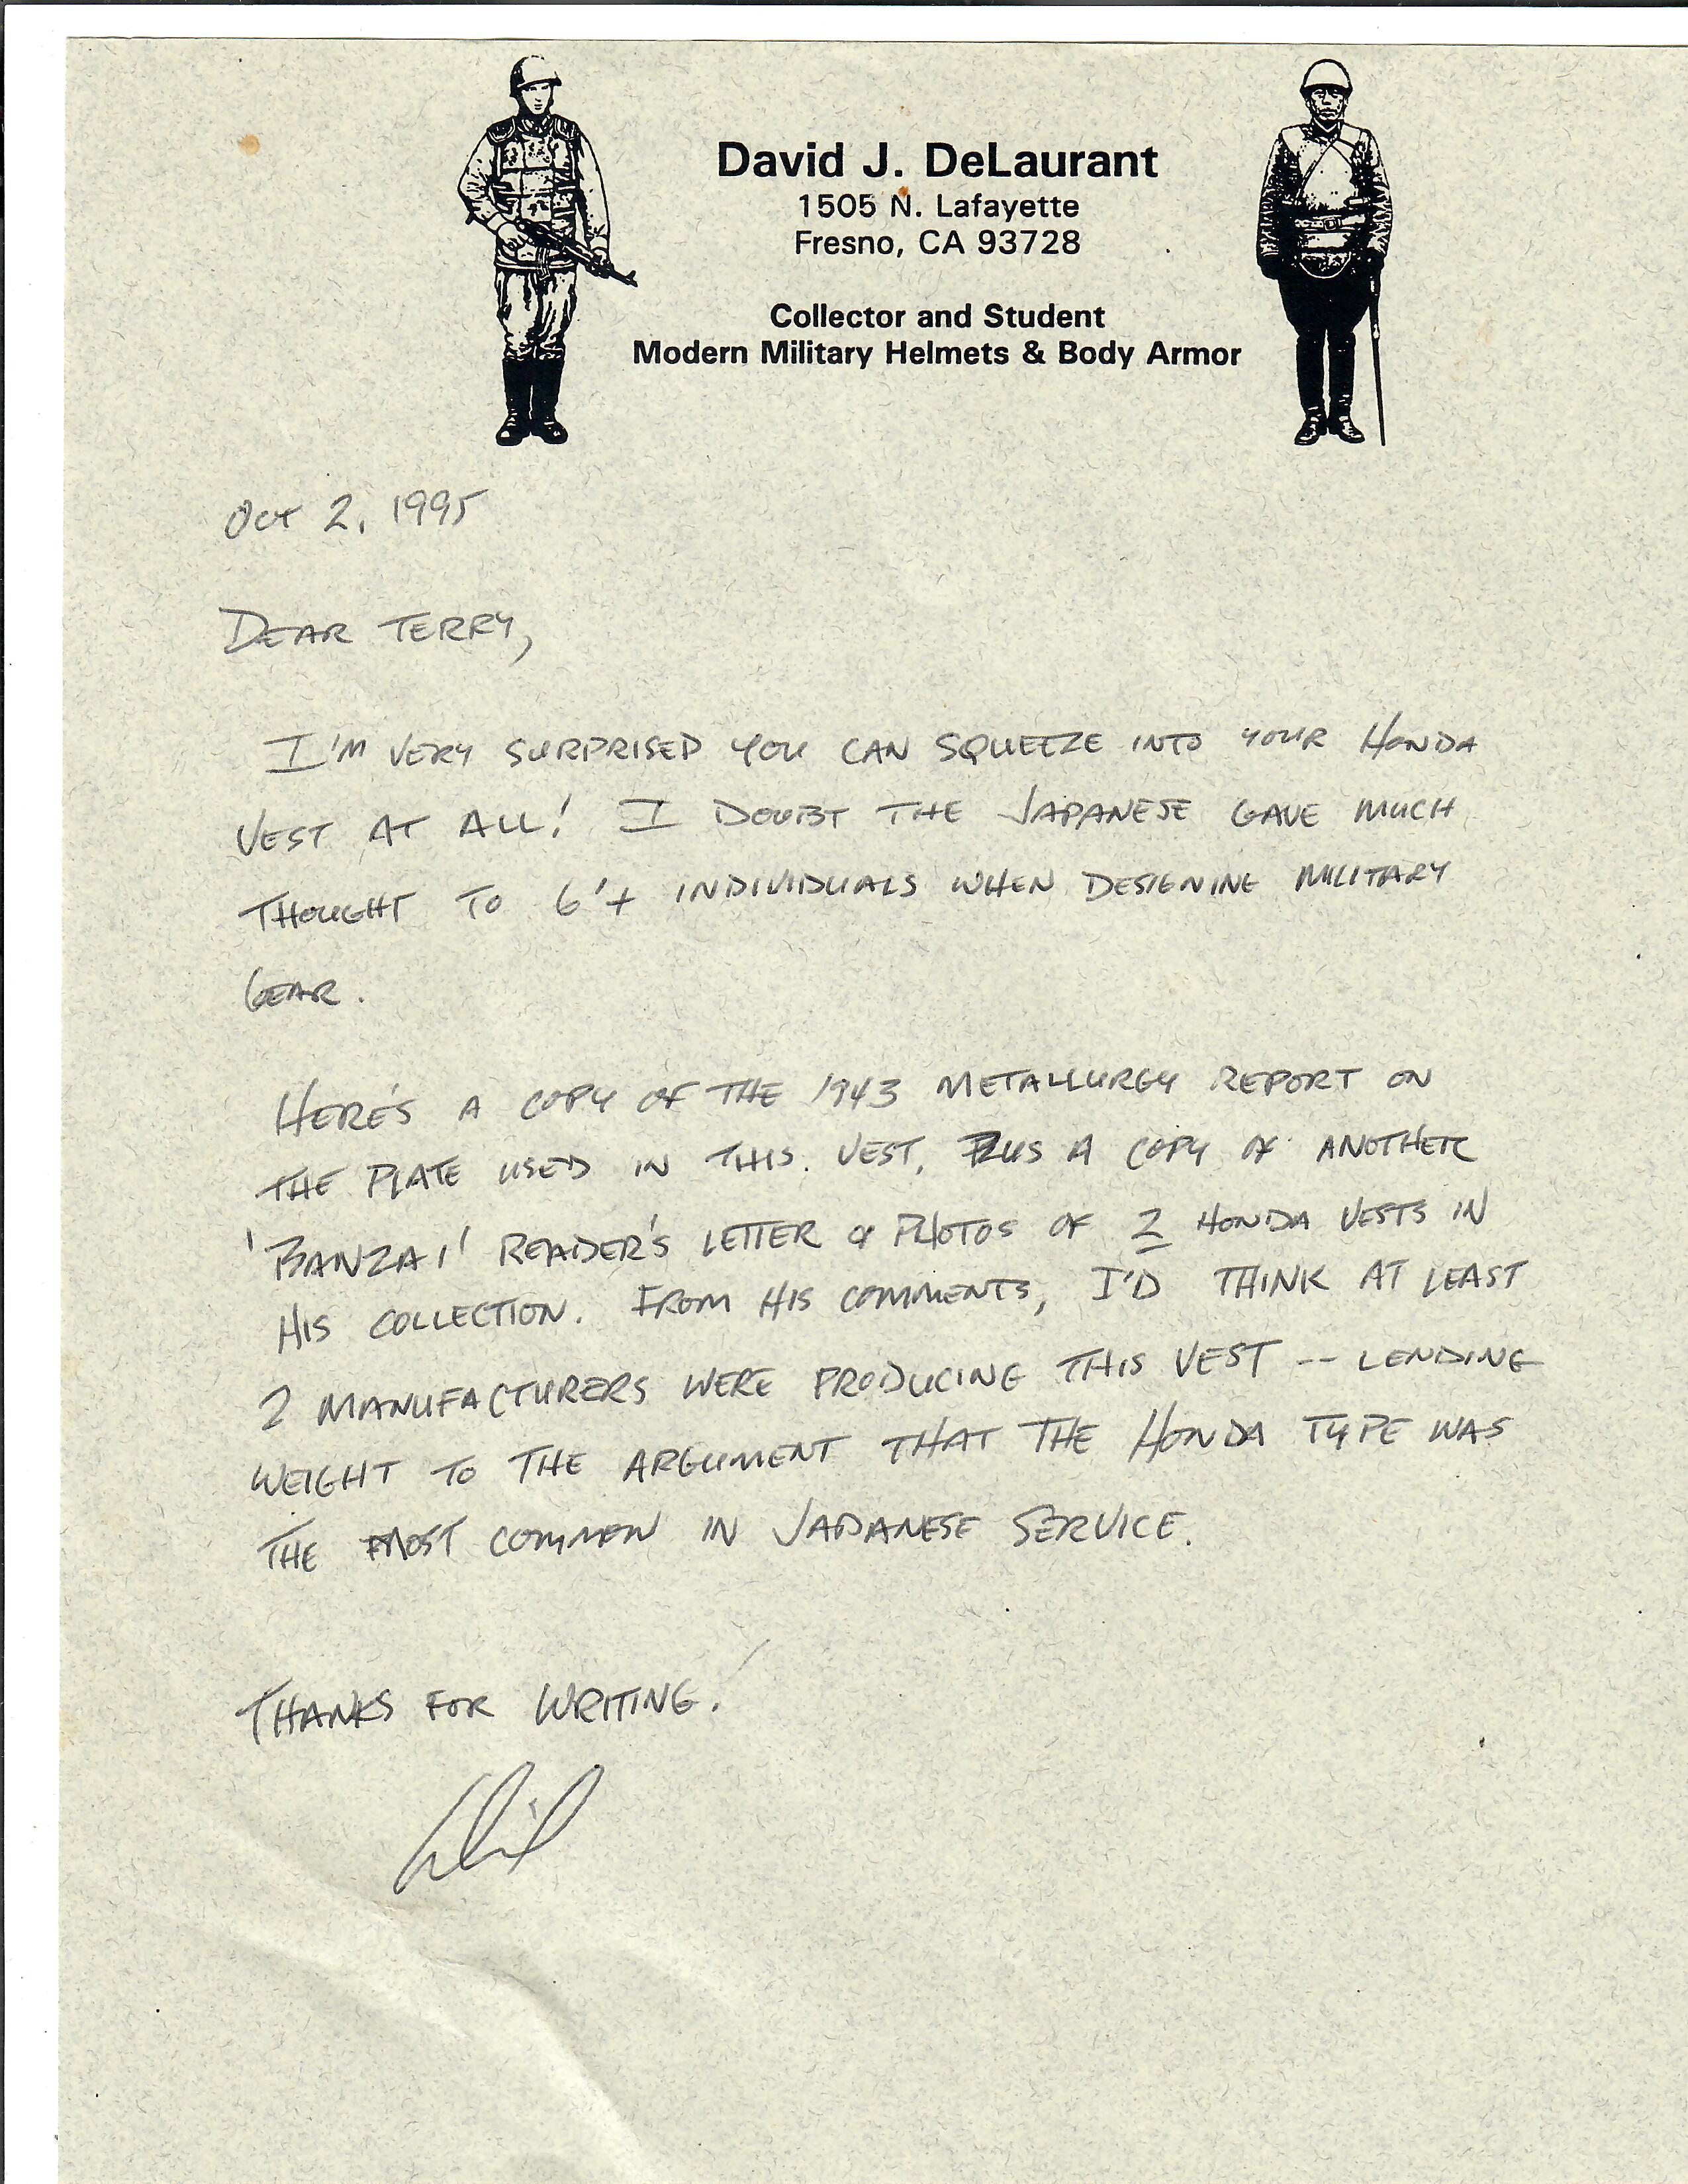 David J. DeLaurant
1505 N. Lafayette
Fresno, CA 93728
Collector and Student
Modern Military Helmets & Body Armor
OCT 2, 1995
DEAR TERRY,
I'M VERY SURPRISED YOU CAN SQUEEZE INTO YOUR HONDA
VEST AT ALL! I DOUBT THE JAPANESE GAVE MUCH
THOUGHT TO 6'+ INDIVIDUALS WHEN DESIGNING MILITARY
GEAR.
HERE'S A COPY OF THE 1943 METALLURGY REPORT ON
THE PLATE USED IN THIS VEST, PLUS A COPY OF ANOTHER
'BANZAI' READER'S LETTER & PHOTOS OF 2 HONDA VESTS IN
HIS COLLECTION. FROM HIS COMMENTS, I'D THINK AT LEAST
2 MANUFACTURERS WERE PRODUCING THIS VEST -- LENDING
WEIGHT TO THE ARGUMENT THAT THE HONDA TYPE WAS
THE MOST COMMON IN JAPANESE SERVICE.
THANKS FOR WRITING!